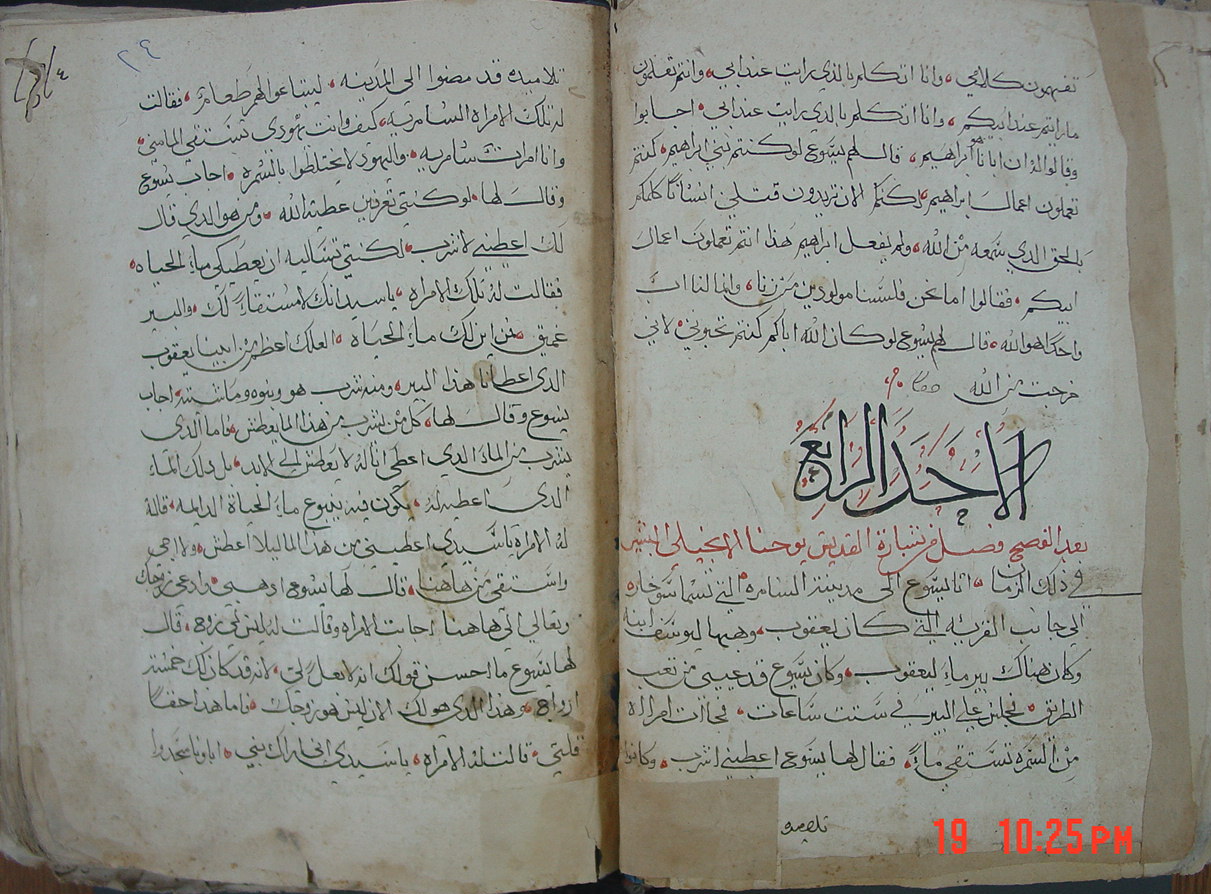 تفهمون كلامي وانا اتكلم بالذي رايت عند ابي وانتم تعلمون
ما رايتم عند ابيكم وانا اتكلم بالذي رايت عند ابي اجابوا
وقالوا له ان ابانا هو ابراهيم قال لهم يسوع لو كنتم بني ابراهيم كنتم
تعملون اعمال ابراهيم لكنكم الان تريدون قتلي انسانا كلمكم
بالحق الذي سمعه من الله ولم يفعل ابراهيم هذا انتم تعملون اعمال
ابيكم فقالوا اما نحن فلسنا مولودين من زنا وانما لنا اب
واحدا هو الله قال لهم يسوع لو كان الله اباكم كنتم تحبوني لاني
خرجت من الله
الاحد الرابع
بعد الفصح فصل من بشارة القديس يوحنا الانجيلي البشير
في ذلك الزمان اتا يسوع الى مدينة السامره التي تسما سوخاره
الي جانب القريه التي كان يعقوب وهبها ليوسف ابنه
وكان هناك بير ماء ليعقوب وكان يسوع قد عيي من تعب
الطريق فجلس علي البير في ستت ساعات فجاات امراه
من السمره تستقي ماء فقال لها يسوع اعطيني اشرب وكانوا
تلاميده
٢٤
تلاميده قد مضوا الى المدينه ليبتاعوا لهم طعام فقالت
له تلك الامراه السامريه كيف وانت يهودي تستقي الما مني
وانا امرات سامريه واليهود لا يختلطوا بالسمره اجاب يسوع
وقال لها لو كنتي تعرفين عطية الله ومن هو الذي قال
لك اعطيني لاشرب لكنتي تساليه ان يعطيكي ماء الحياه
فقالت له تلك الامراه يا سيد انك لا مستقاء لك والبير
عميق فمن اين لك ماء الحياة العلك اعظم من ابينا يعقوب
الذي اعطانا هذا البير ومنه شرب هو وبنوه وماشيته اجاب
يسوع وقال لها كل من يشرب من هذا الما يعطش فاما الذي
يشرب من الماء الذي اعطي انا له لا يعطش الى الابد بل ذلك الماء
الذي اعطيه له يكون فيه ينبوع ماء الحياة الدايمه قالة
له الامراه يا سيدي اعطيني من هذا الما ليلا اعطش ولا اجي
واستقي من هاهنا قال لها يسوع ادهبي وادعي زوجك
وتعالي الي هاهنا اجابت الامراه وقالت له ليس لي زوج قال
لها يسوع ما احسن قولك انه لا بعل لي لانه قد كان لك خمسة
ازواج وهذا الذي هو لك الان ليس هو زوجك واما هذا حقا
قلتي قالت له الامراه يا سيدي اني اراك نبي اباونا سجدوا
19 10:25 PM